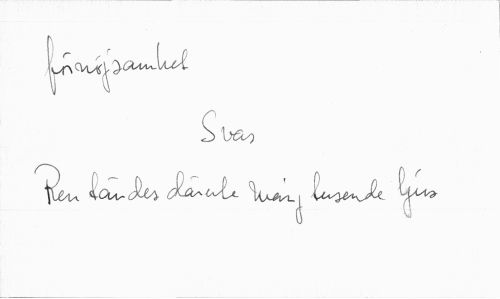 förnöjsamhet
Svar
Ren tändes därute mång tusende ljus